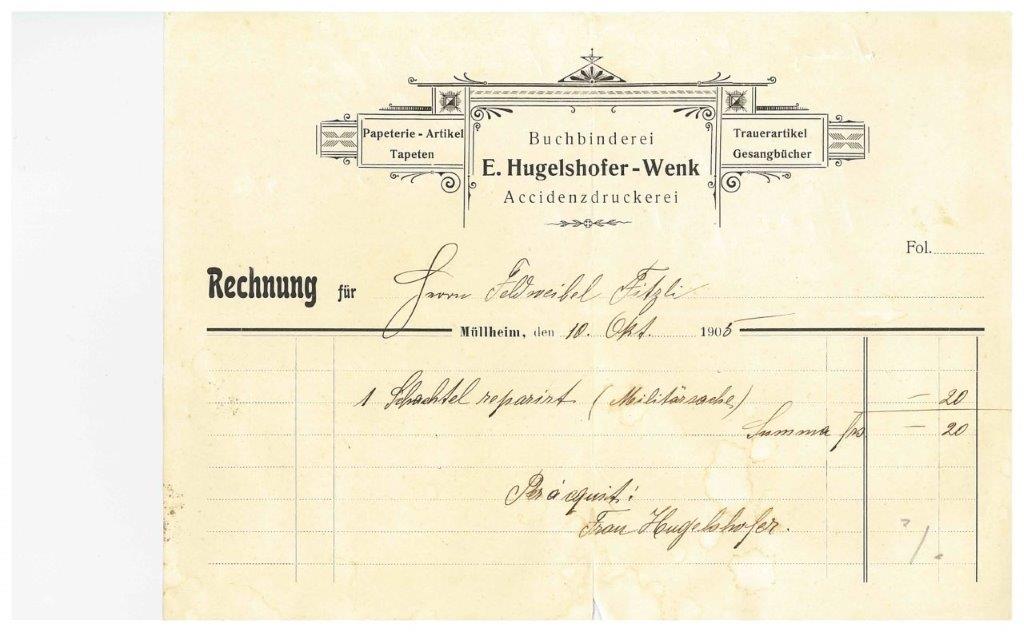 Papeterie - Artikel
Tapeten
Buchbinderei
E. Hugelshofer-Wenk
Accidenzdruckerei
Trauerartikel
Gesangbücher
Fol.
Rechnung für Herrn Feldweibel Fitzli
Müllheim, den 10. Okt. 1905
1 Schachtel reparirt (Militärsache) – 20
Summa frs. – 20
Per acquit:
Frau Hugelshofer.